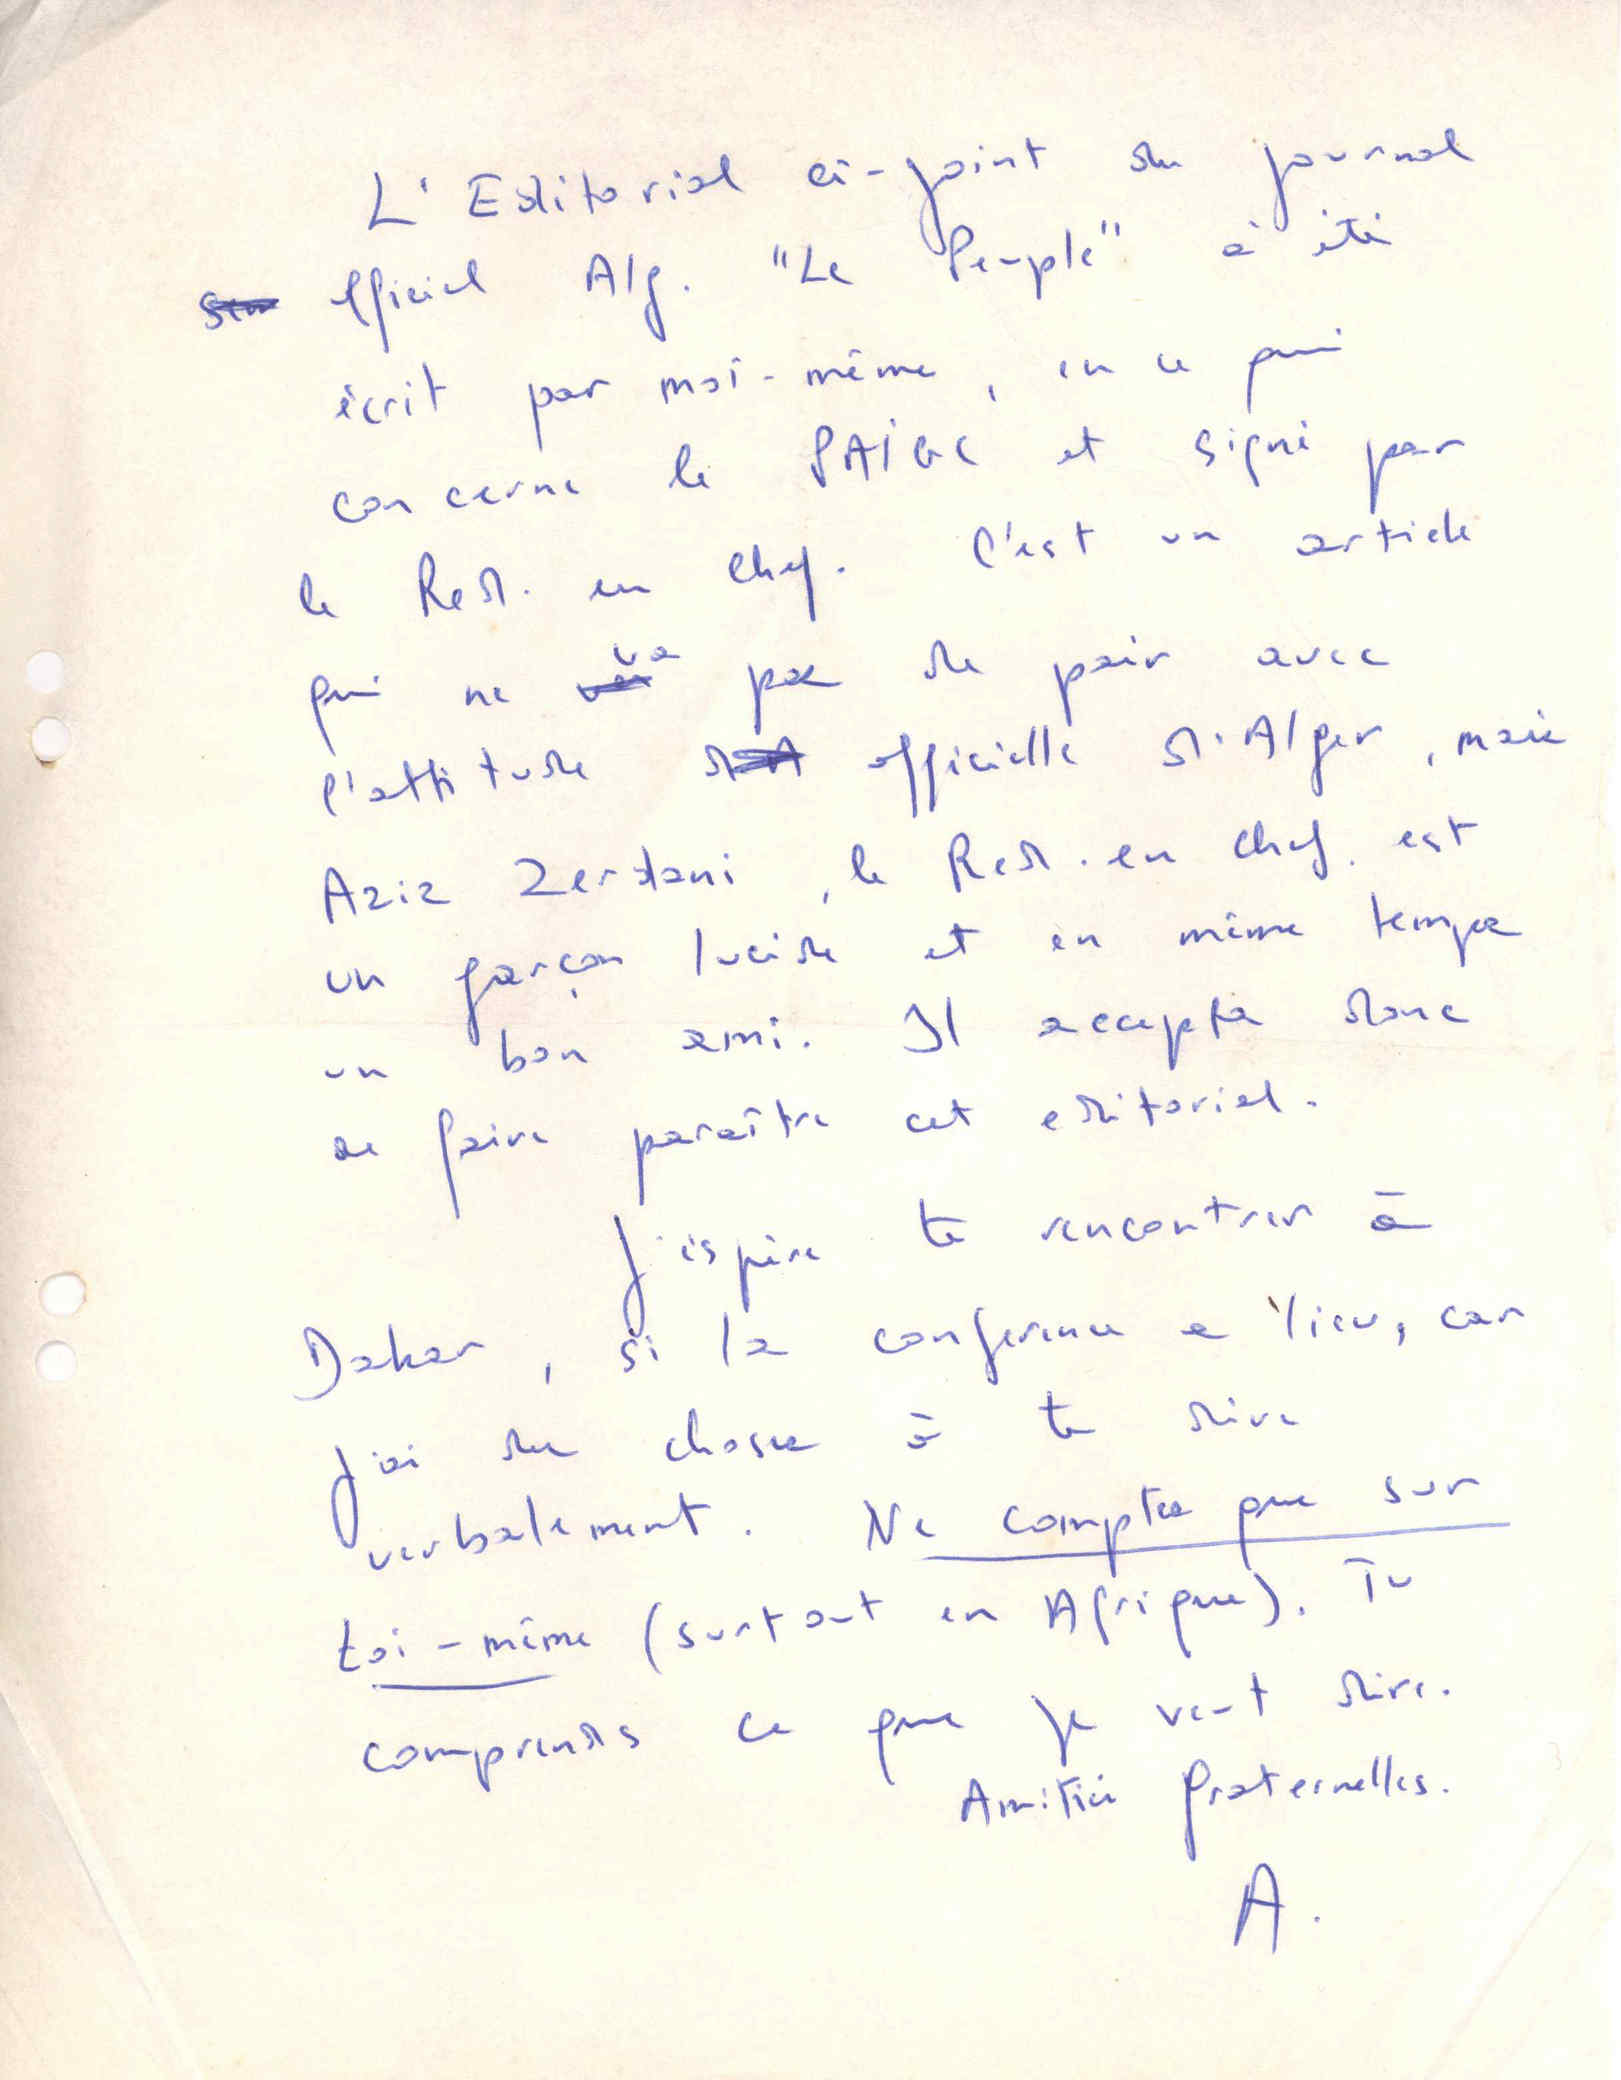 L'Editorial ci-joint du journal
officiel Alg. "Le Peuple" a été
écrit par moi-même, en ce qui
concerne le PAIGC et signé par
le Red. en Chef. C'est un article
qui ne va pas de pair avec
l'attitude officielle d'Alger, mais
Aziz Zerdani, le Red. en Chef. est
un garçon lucide et en même temps
un bon ami. Il accepta donc
de faire paraître cet editorial.
J'éspère te rencontrer à
Dakar, si la conference a lieu, car
j'ai des choses à te dire
verbalement. Ne comptes que sur
toi-même (surtout en Afrique). Tu
comprends ce que je veut dire.
Amitiés fraternelles.
A.